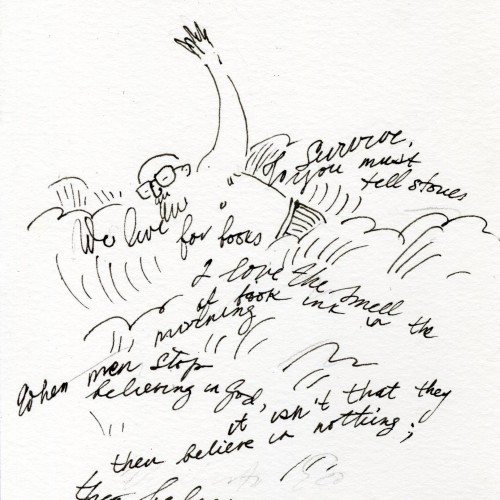 To survive,
you must
tell stories
We live
for books
I love the smell
of book ink in the
morning
When men stop
believing in God,
it isn't that they
then believe in nothing;
they